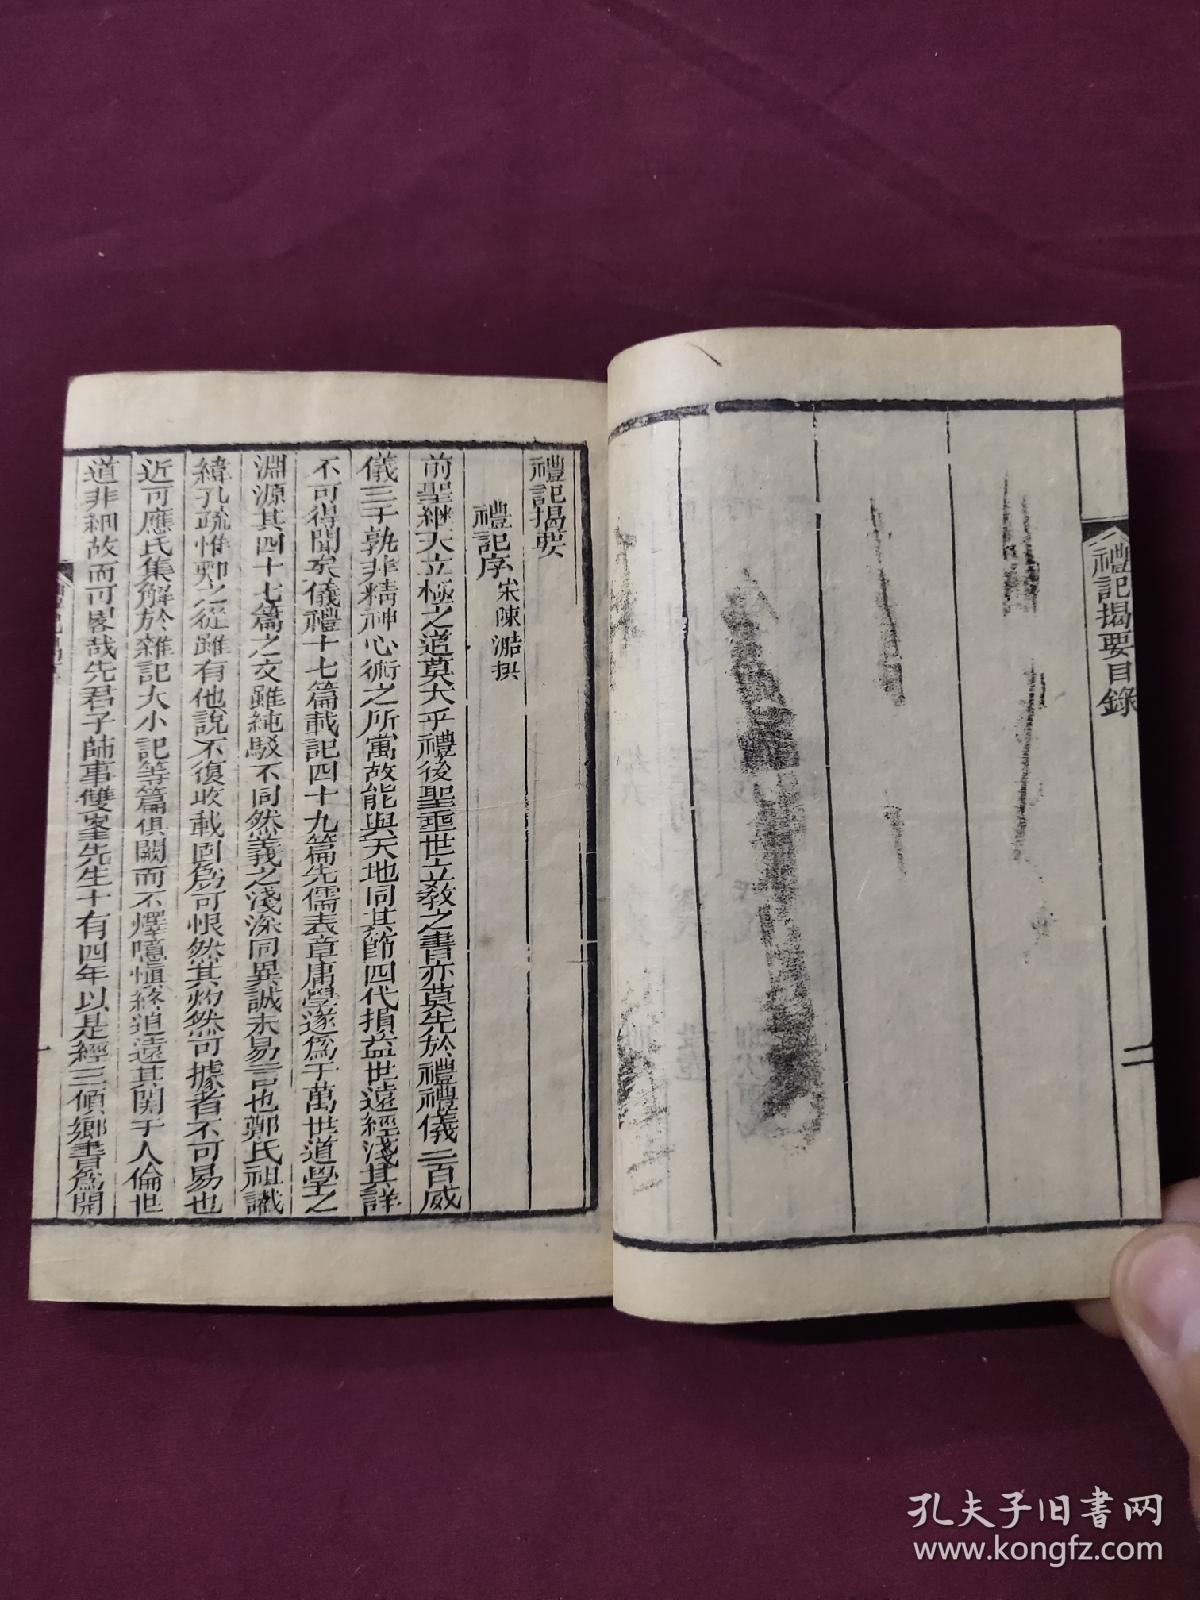 禮記揭要目錄
二
禮記揭要
禮記序 宋陳澔撰
前聖継天立極之道莫大乎禮後聖垂世立敎之書亦莫先於禮禮儀三百威
儀三千孰非精神心術之所寓故能與天地同其節四代損益世遠經淺其詳
不可得聞矣儀禮十七篇載記四十九篇先儒表章庸學遂爲千萬世道學之
淵源其四十七篇之文雖純駁不同然義之淺深同異誠未易言也鄭氏祖讖
緯孔疏惟鄭之從雖有他說不復收載固爲可恨然其灼然可據者不可易也
近可應氏集解於雜記大小記等篇俱闕而不釋噫愼終追遠其関于人倫世
道非細故而可畧哉先君子師事雙峯先生十有四年以是經三傾鄉書爲開
一
孔夫子旧书网
www.kongfz.com